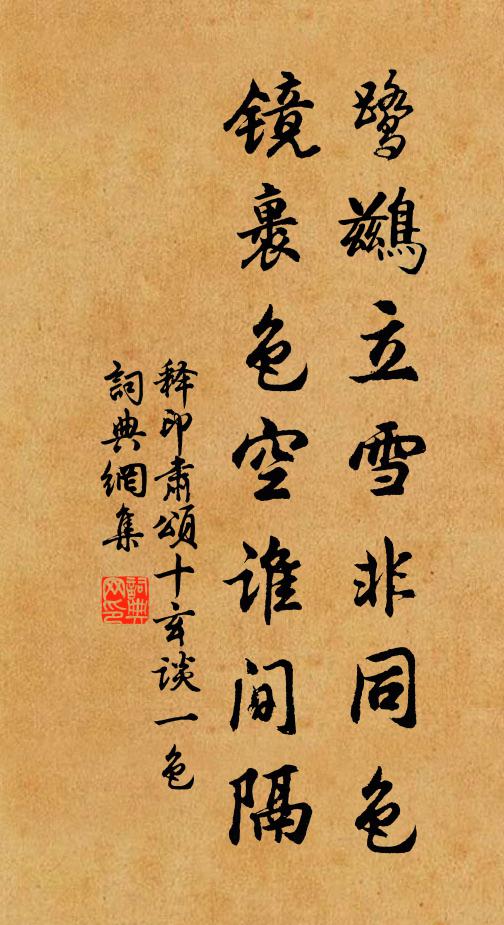 鹭鷀立雪非同色
镜裹色空谁间隔
释印肃頌十玄谈一色
詞典網集
詞典网印